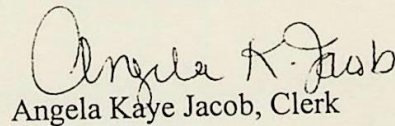 Angela K. Jacob
Angela Kaye Jacob, Clerk